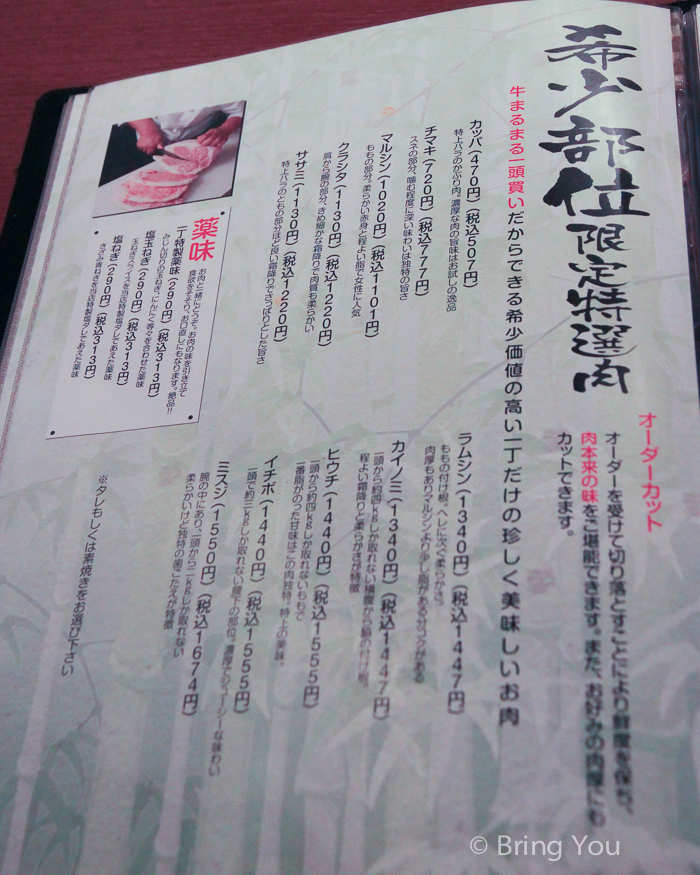 希少部位限定特選肉
オーダーカット
オーダーを受けて切り落とすことにより鮮度を保ち、
肉本来の味をご堪能できます。また、お好みの肉厚にも
カットできます。
牛まるまる一頭買いだからできる希少価値の高い一丁だけの珍しく美味しいお肉
カッパ(470円)(税込507円)
特上バラのかぶり肉、濃厚な肉の旨味はお試しの逸品
チマキ(720円)(税込777円)
スネの部分。噛む程度に深い味わいは独特の旨さ
マルシン(1020円)(税込1101円)
ももの部分。柔らかい赤身と程よい脂で女性に人気
クラシタ(1130円)(税込1220円)
肩から腕の部分。きめ細かな霜降りで肉質も柔らかい
ササミ(1130円)(税込1220円)
特上バラのともの部分ほど良い霜降りでさっぱりとした旨さ
ラムシン(1340円)(税込1447円)
ももの付け根。ヘレに次ぐ柔らかさ。
肉厚もありマルシンより少し脂がある分コクがある
カイノミ(1340円)(税込1447円)
一頭から約四kgしか取れない横腹から脇の付け根。
程よい霜降りと柔らかさが特徴
ヒウチ(1440円)(税込1555円)
一頭から約四kgしか取れないももで
一番脂がのった甘味はこの肉独特。特上の美味。
イチボ(1440円)(税込1555円)
一頭で約二kgしか取れない腰下の部位。濃厚でジューシーな味わい
ミスジ(1550円)(税込1674円)
腕の中にあり、一頭から二kgしか取れない
柔らかいけど独特の歯ごたえが特徴
薬味
お肉と一緒にどうぞ。お肉の味を引き立て
食欲をそそり、お口直しにもなります。絶品!!
一丁特製薬味(290円)(税込313円)
みじん切りの玉ねぎ、にんにく等々を合わせた薬味
塩玉ねぎ(290円)(税込313円)
玉ねぎスライスを当店特製塩ダレであえた薬味
塩ねぎ(290円)(税込313円)
きざみ青ねぎを当店特製塩ダレであえた薬味
※タレもしくは素焼きをお選び下さい
© Bring You